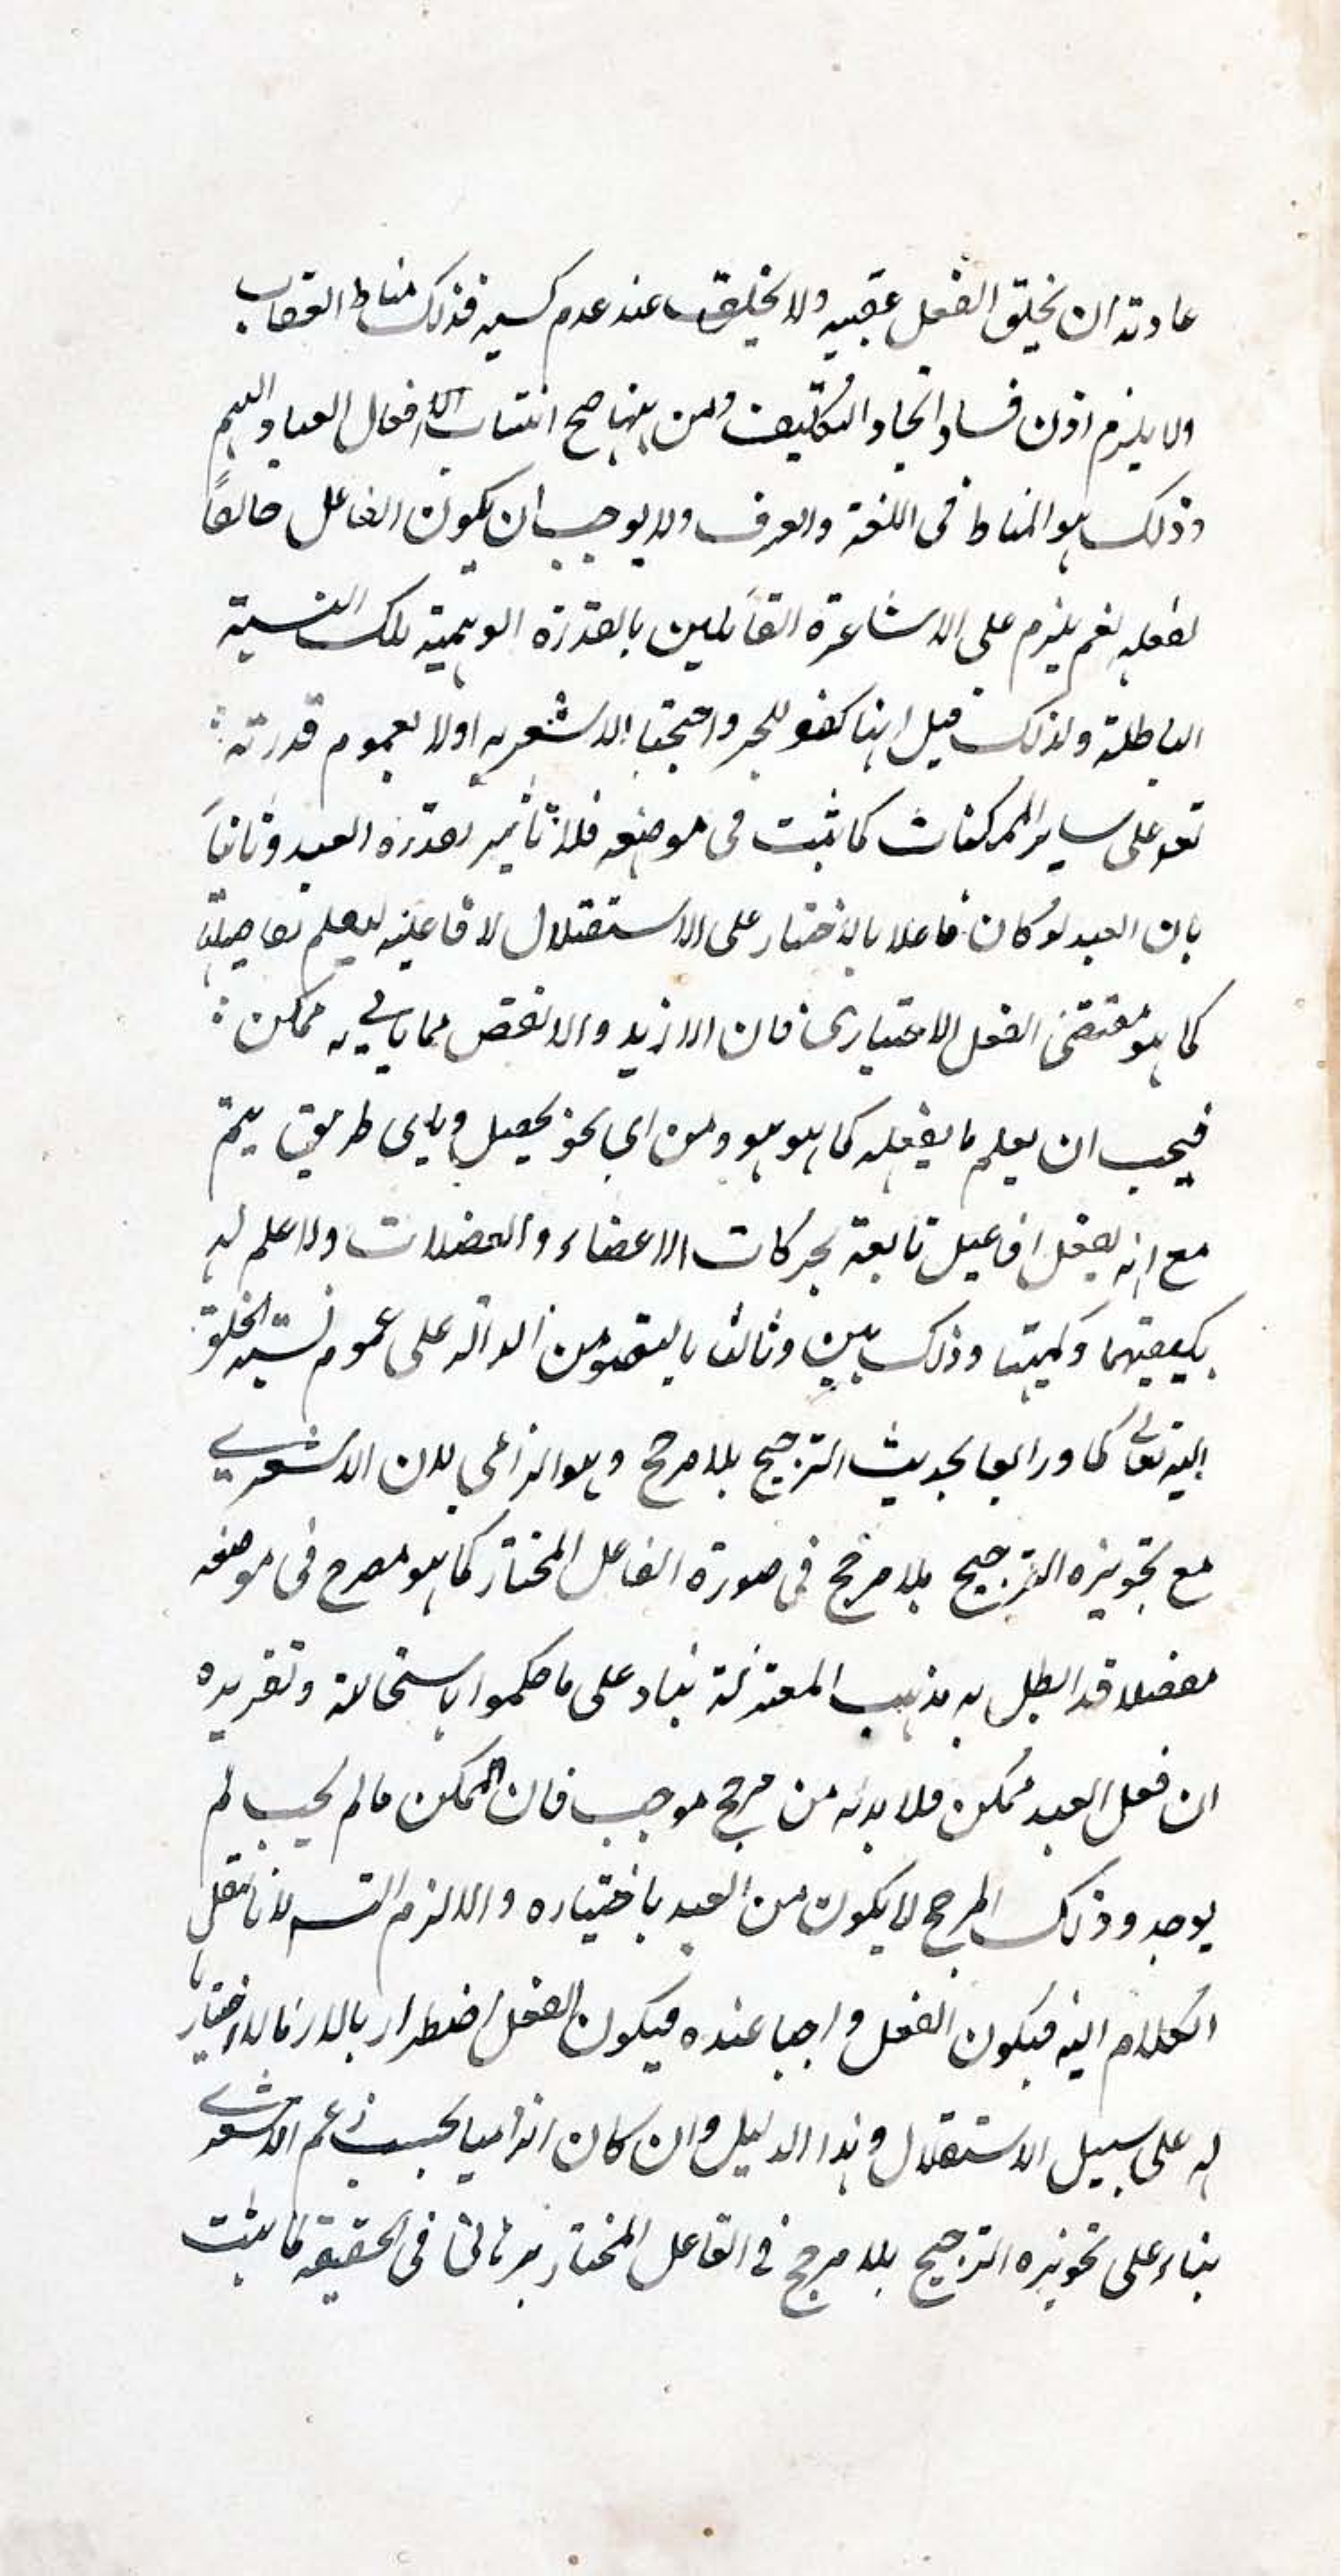 عادته ان يخلق الفعل عقيبه ولا يخلق عند عدم كسبه فذلك مناط العقاب
ولا يلزم اذن فساد اتحاد التكليف ومن ههنا صح انتساب الافعال العباد اليهم
وذلك هو المناط فى اللغة والعرف ولا يوجب ان يكون الفاعل خالقاً
لفعله نعم يلزم على الاشاعرة القائلين بالقدرة الوهمية تلك النسبة
الباطلة ولذلك قيل انها كفو للجبر واحتجت الاشعريه اولا بعموم قدرته
تعو على ساير الممكنات كما ثبت فى موضعه فلا تأثير لقدرة العبد وثانياً
بان العبد لو كان فاعلا بالاختيار على الاستقلال لا فاعليه ليعلم تفاصيلها
كما هو مقتضى الفعل الاختيارى فان الازيد والانقص مما ياتى به ممكن
فيجب ان يعلم ما يفعله كما هو هو ومن اى نحو يحصل وباى طريق يتم
مع انه يفعل افاعيل تابعة لحركات الاعضاء والعضلات ولا علم له
بكيفيتهما وكميتها وذلك بين وثالثا بالنصوص الدالة على عموم نسبة الخلق
اليه تعالى كما ورابعا بحديث الترجيح بلا مرجح وهو الزامى لان الاشعرى
مع تجويزه الترجيح بلا مرجح فى صورة الفاعل المختار كما هو مصرح فى موضعه
مفصلا قد ابطل به مذهب المعتزلة بناء على ما حكموا باستحالته وتقريره
ان فعل العبد ممكن فلا بد له من مرجح موجب فان الممكن ما لم يجب لم
يوجد وذلك المرجح لا يكون من العبد باختياره والا لزم التس لانا ننقل
الكلام اليه فيكون الفعل واجبا عنده فيكون الفعل اضطراريا لازما لا اختيار
له على سبيل الاستقلال وهذا الدليل وان كان الزاميا بحسب زعم الاشعرى
بناء على تجويزه الترجيح بلا مرجح فى الفاعل المختار برهانى فى الحقيقه كما يثبت